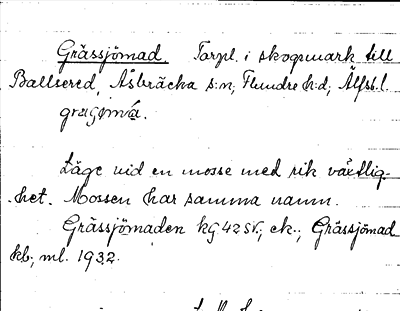 Grässjömad. Torpl. i skogsmark till
Ballsered, Åsbräcka s:n, Flundre h:d, Älfsb.l.
Läge vid en mosse med rik växtlig-
het. Mossen har samma namn.
Grässjömaden kg 42 SV, ek.; Grässjömad
kb, ml. 1932.